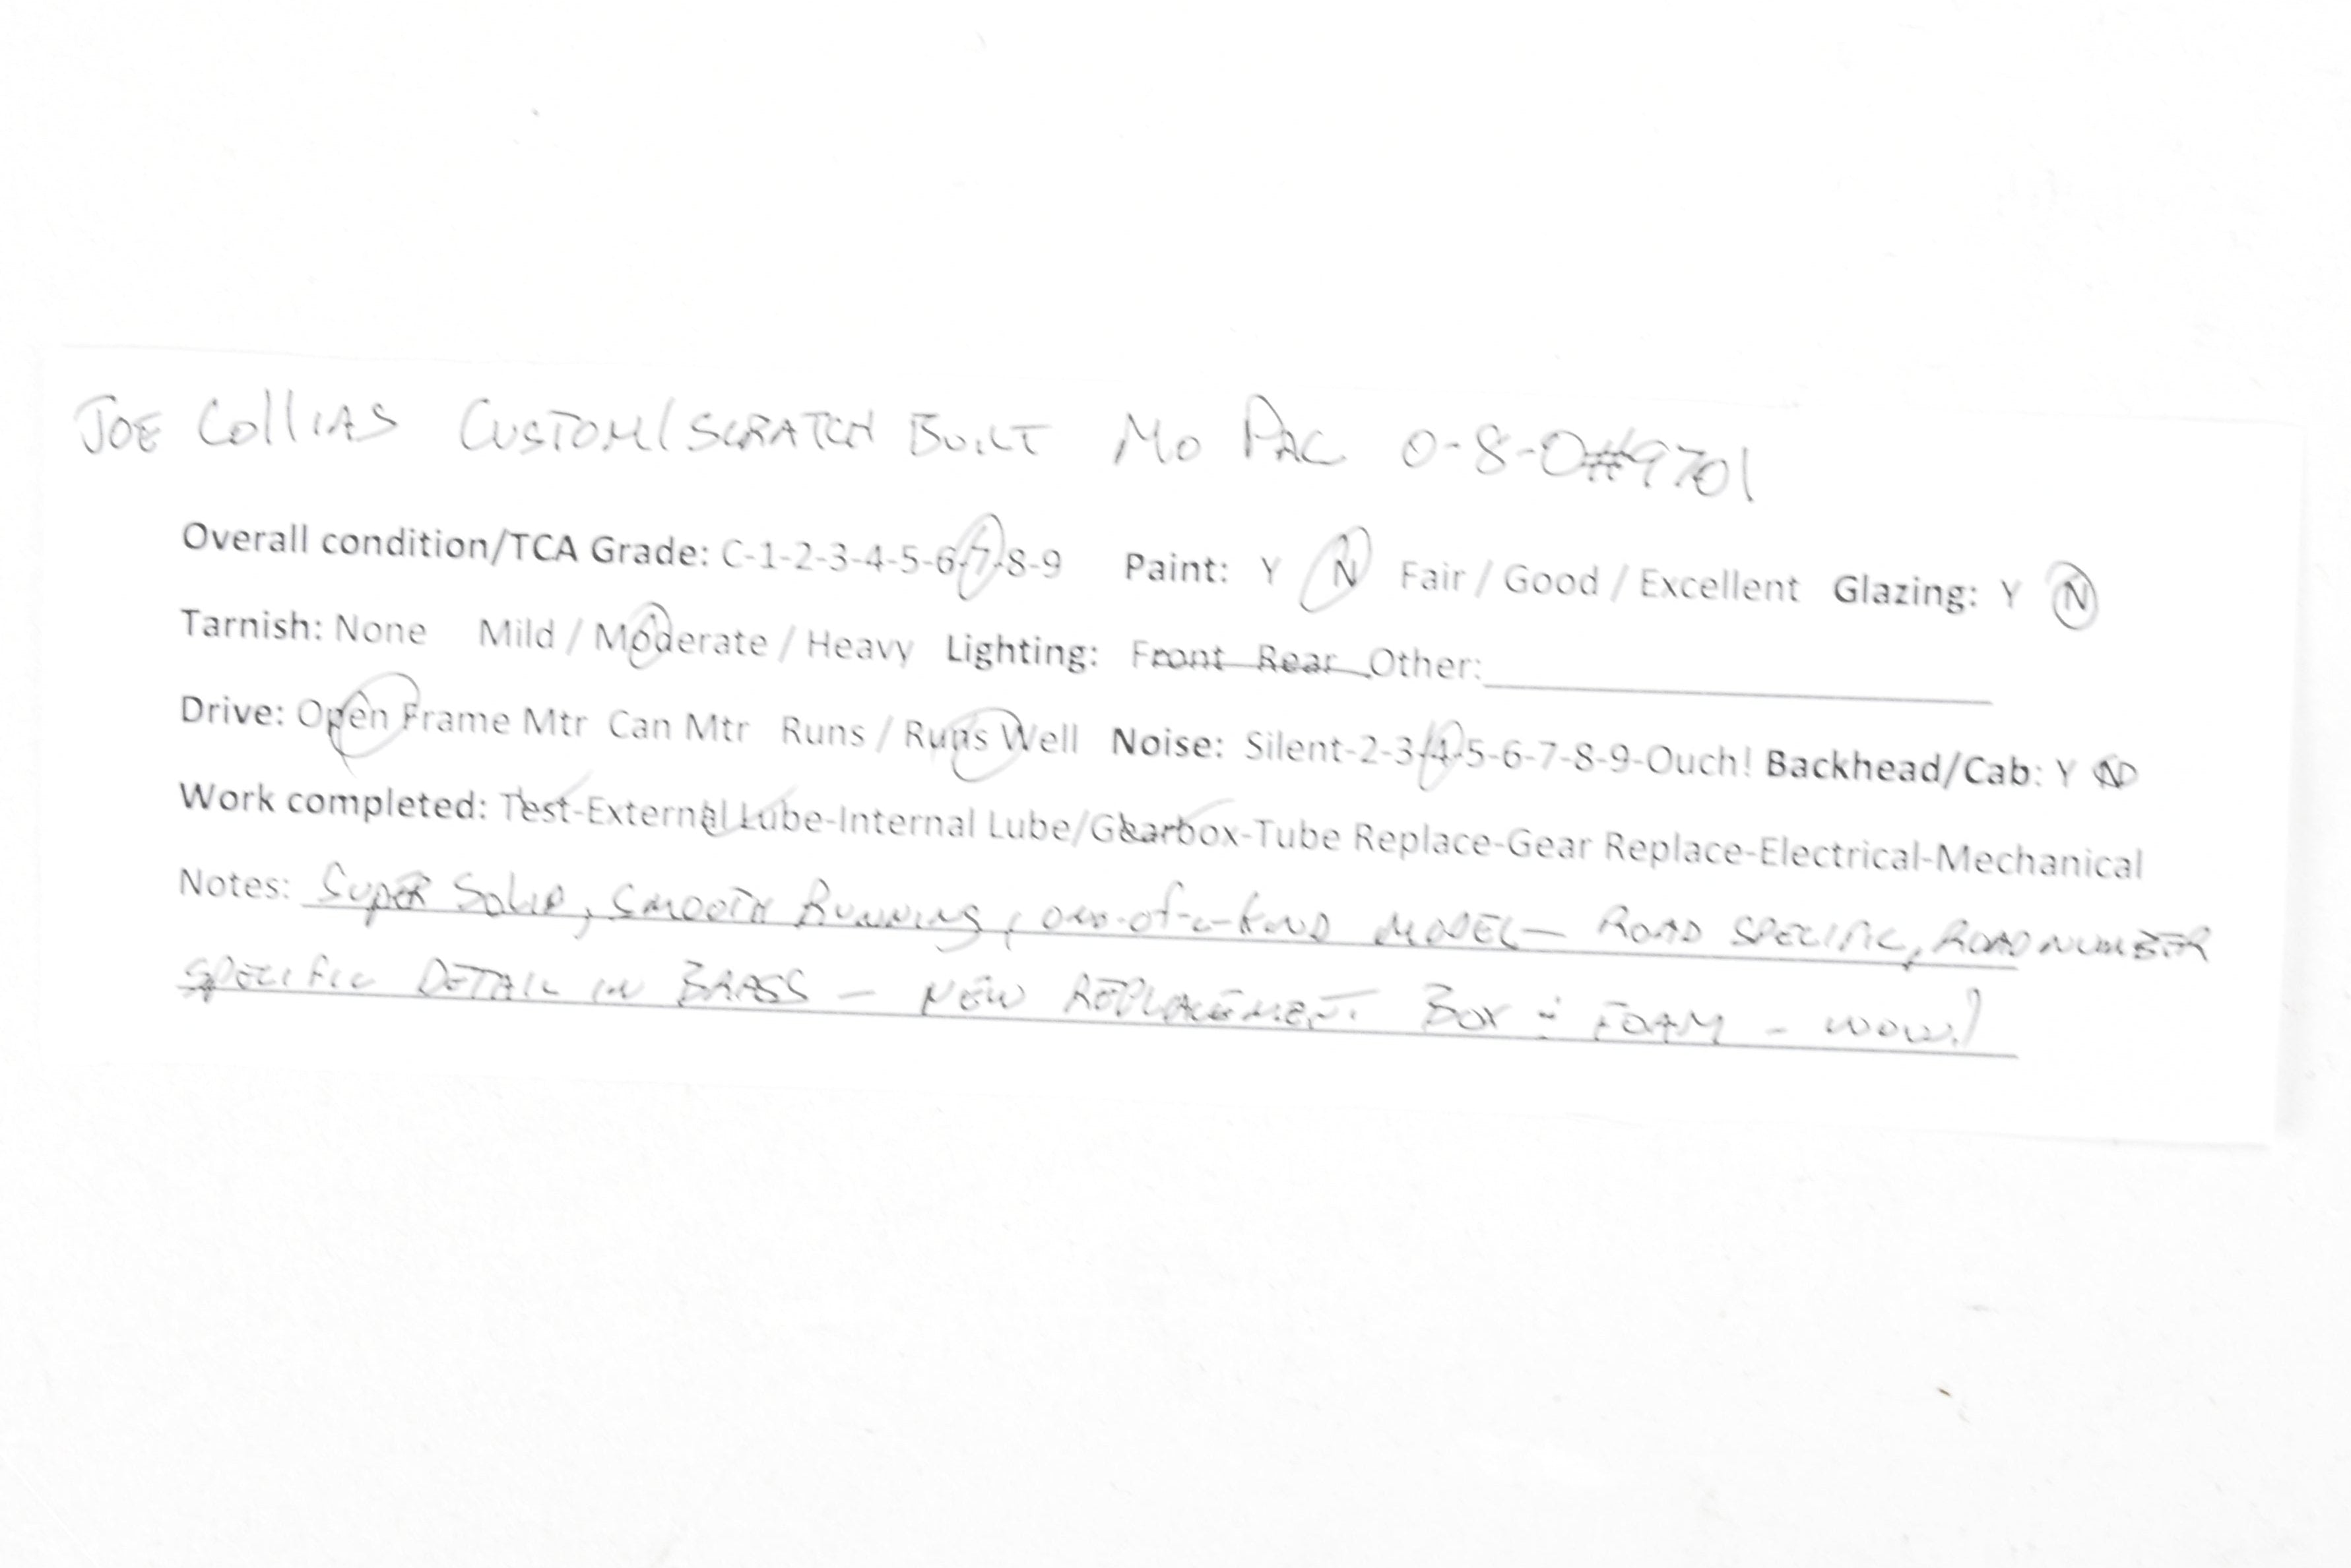 JOE COLLIAS CUSTOM/SCRATCH BUILT MO PAC 0-8-0 #9701
Overall condition/TCA Grade: C-1-2-3-4-5-6-7-8-9 Paint: Y N Fair / Good / Excellent Glazing: Y N
Tarnish: None Mild / Moderate / Heavy Lighting: Front Rear Other:
Drive: Open Frame Mtr Can Mtr Runs / Runs Well Noise: Silent-2-3-4-5-6-7-8-9-Ouch! Backhead/Cab: Y N
Work completed: Test-External Lube-Internal Lube/Gearbox-Tube Replace-Gear Replace-Electrical-Mechanical
Notes: SUPER SOLID, SMOOTH RUNNING, ONE-OF-A-KIND MODEL— ROAD SPECIFIC, ROAD NUMBER
SPECIFIC DETAIL IN BRASS — NEW REPLACEMENT BOX & FOAM - WOW!